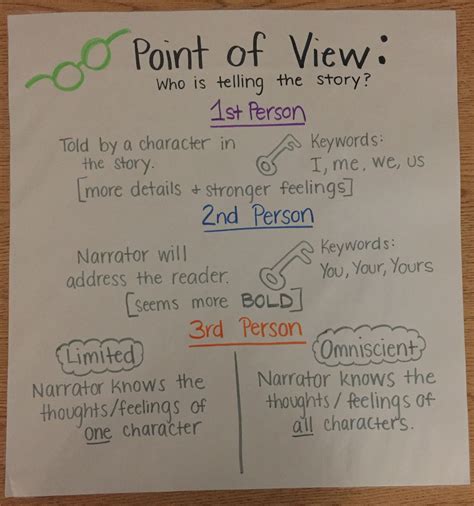 Point of View:
Who is telling the story?
1st Person
Told by a character in
the story.
Keywords:
I, me, we, us
[more details + stronger feelings]
2nd Person
Narrator will
address the reader.
Keywords:
You, Your, Yours
[seems more BOLD]
3rd Person
Limited
Narrator knows the
thoughts/feelings of
one character
Omniscient
Narrator knows the
thoughts/feelings of
all characters.